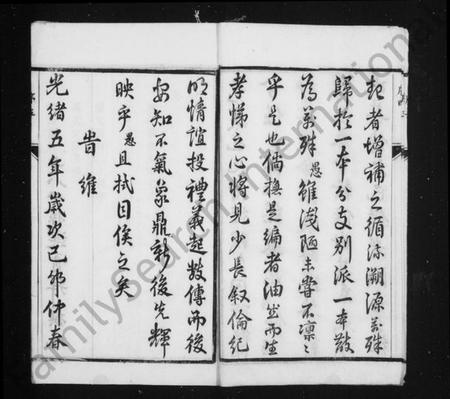 起者增補之循流溯源萬殊
歸於一本分支別派一本散
為萬殊愚雖淺陋未嘗不凜〻
乎是也倘撫是編者油然而生
孝悌之心將見少長敘倫紀
明情誼投禮義起數傳而後
安知不氣象鼎新後先輝
映乎愚且拭目俟之矣
旹維
光緒五年歲次己卯仲春
FamilySearch International